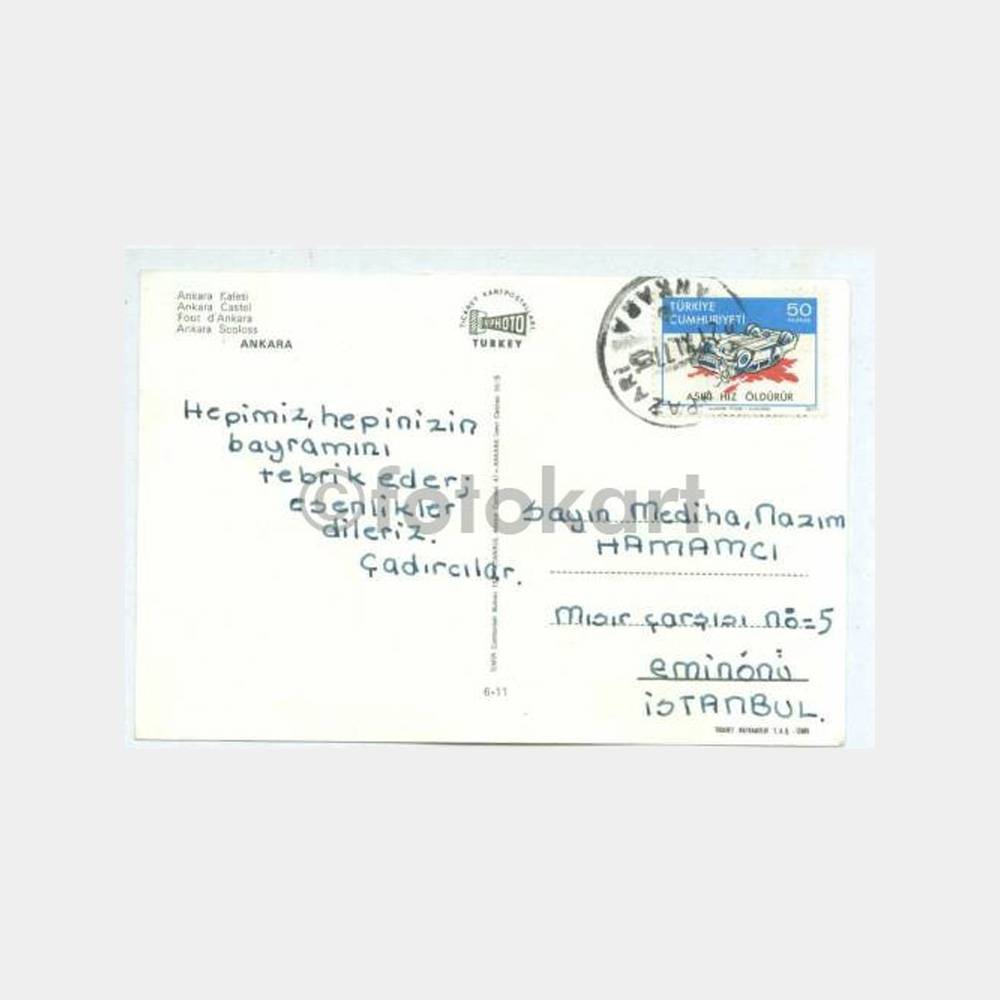 Ankara Kalesi
Ankara Castel
Fout d'Ankara
Ankara Scoloss
ANKARA
TİCARET KARTPOSTALLARI
PHOTO
TURKEY
ANKARA
PAZARI
TÜRKİYE
CUMHURİYETİ
50
AŞIRI HIZ ÖLDÜRÜR
Hepimiz, hepinizin
bayramını
tebrik eder;
esenlikler
dileriz.
Çadırcılar.
©fotokart
Sayın Mediha, Nazım
HAMAMCI
Mısır çarşısı no=5
eminönü
İSTANBUL.
6-11